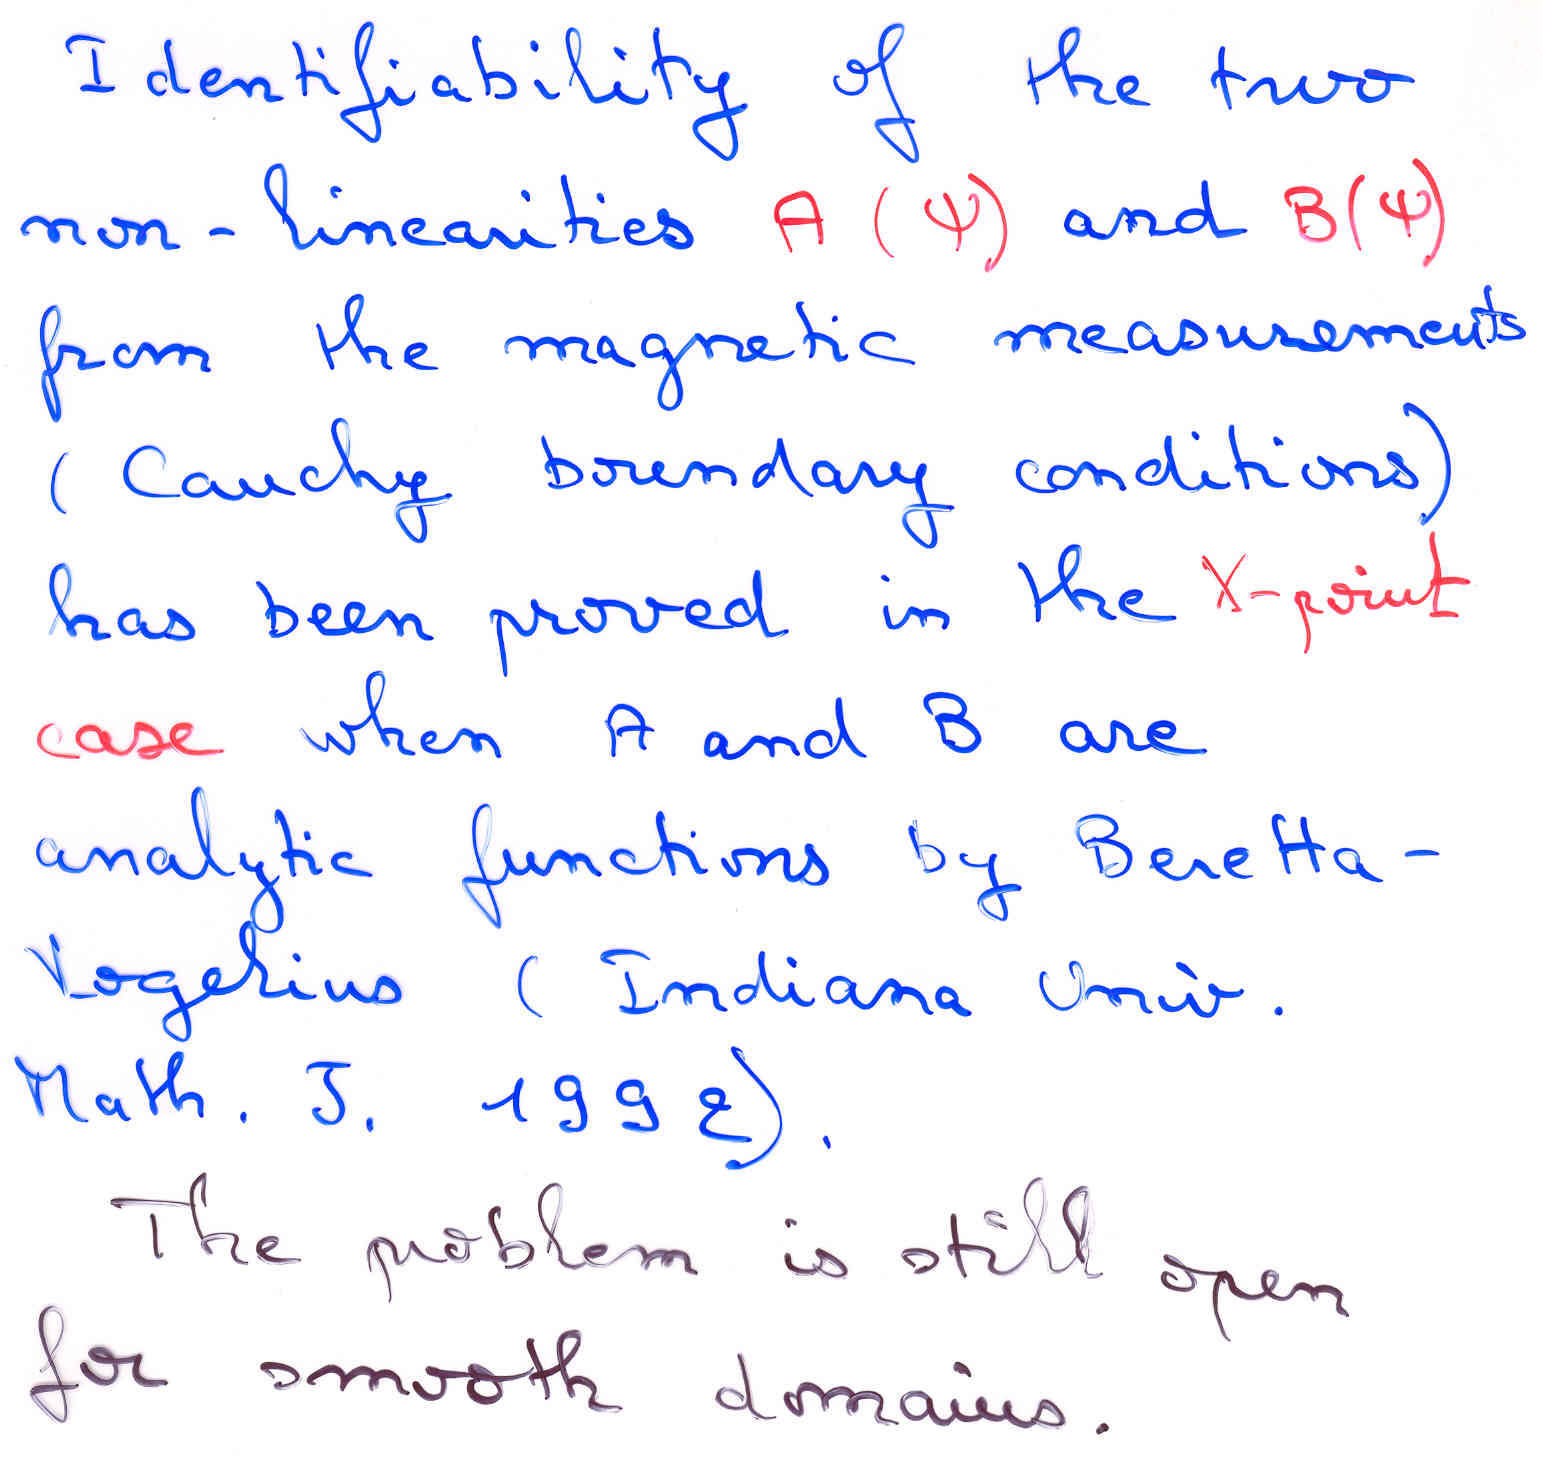 Identifiability of the two
non-linearities A (Ψ) and B(Ψ)
from the magnetic measurements
(Cauchy boundary conditions)
has been proved in the X-point
case when A and B are
analytic functions by Beretta-
Vogelius (Indiana Univ.
Math. J. 1992).
The problem is still open
for smooth domains.